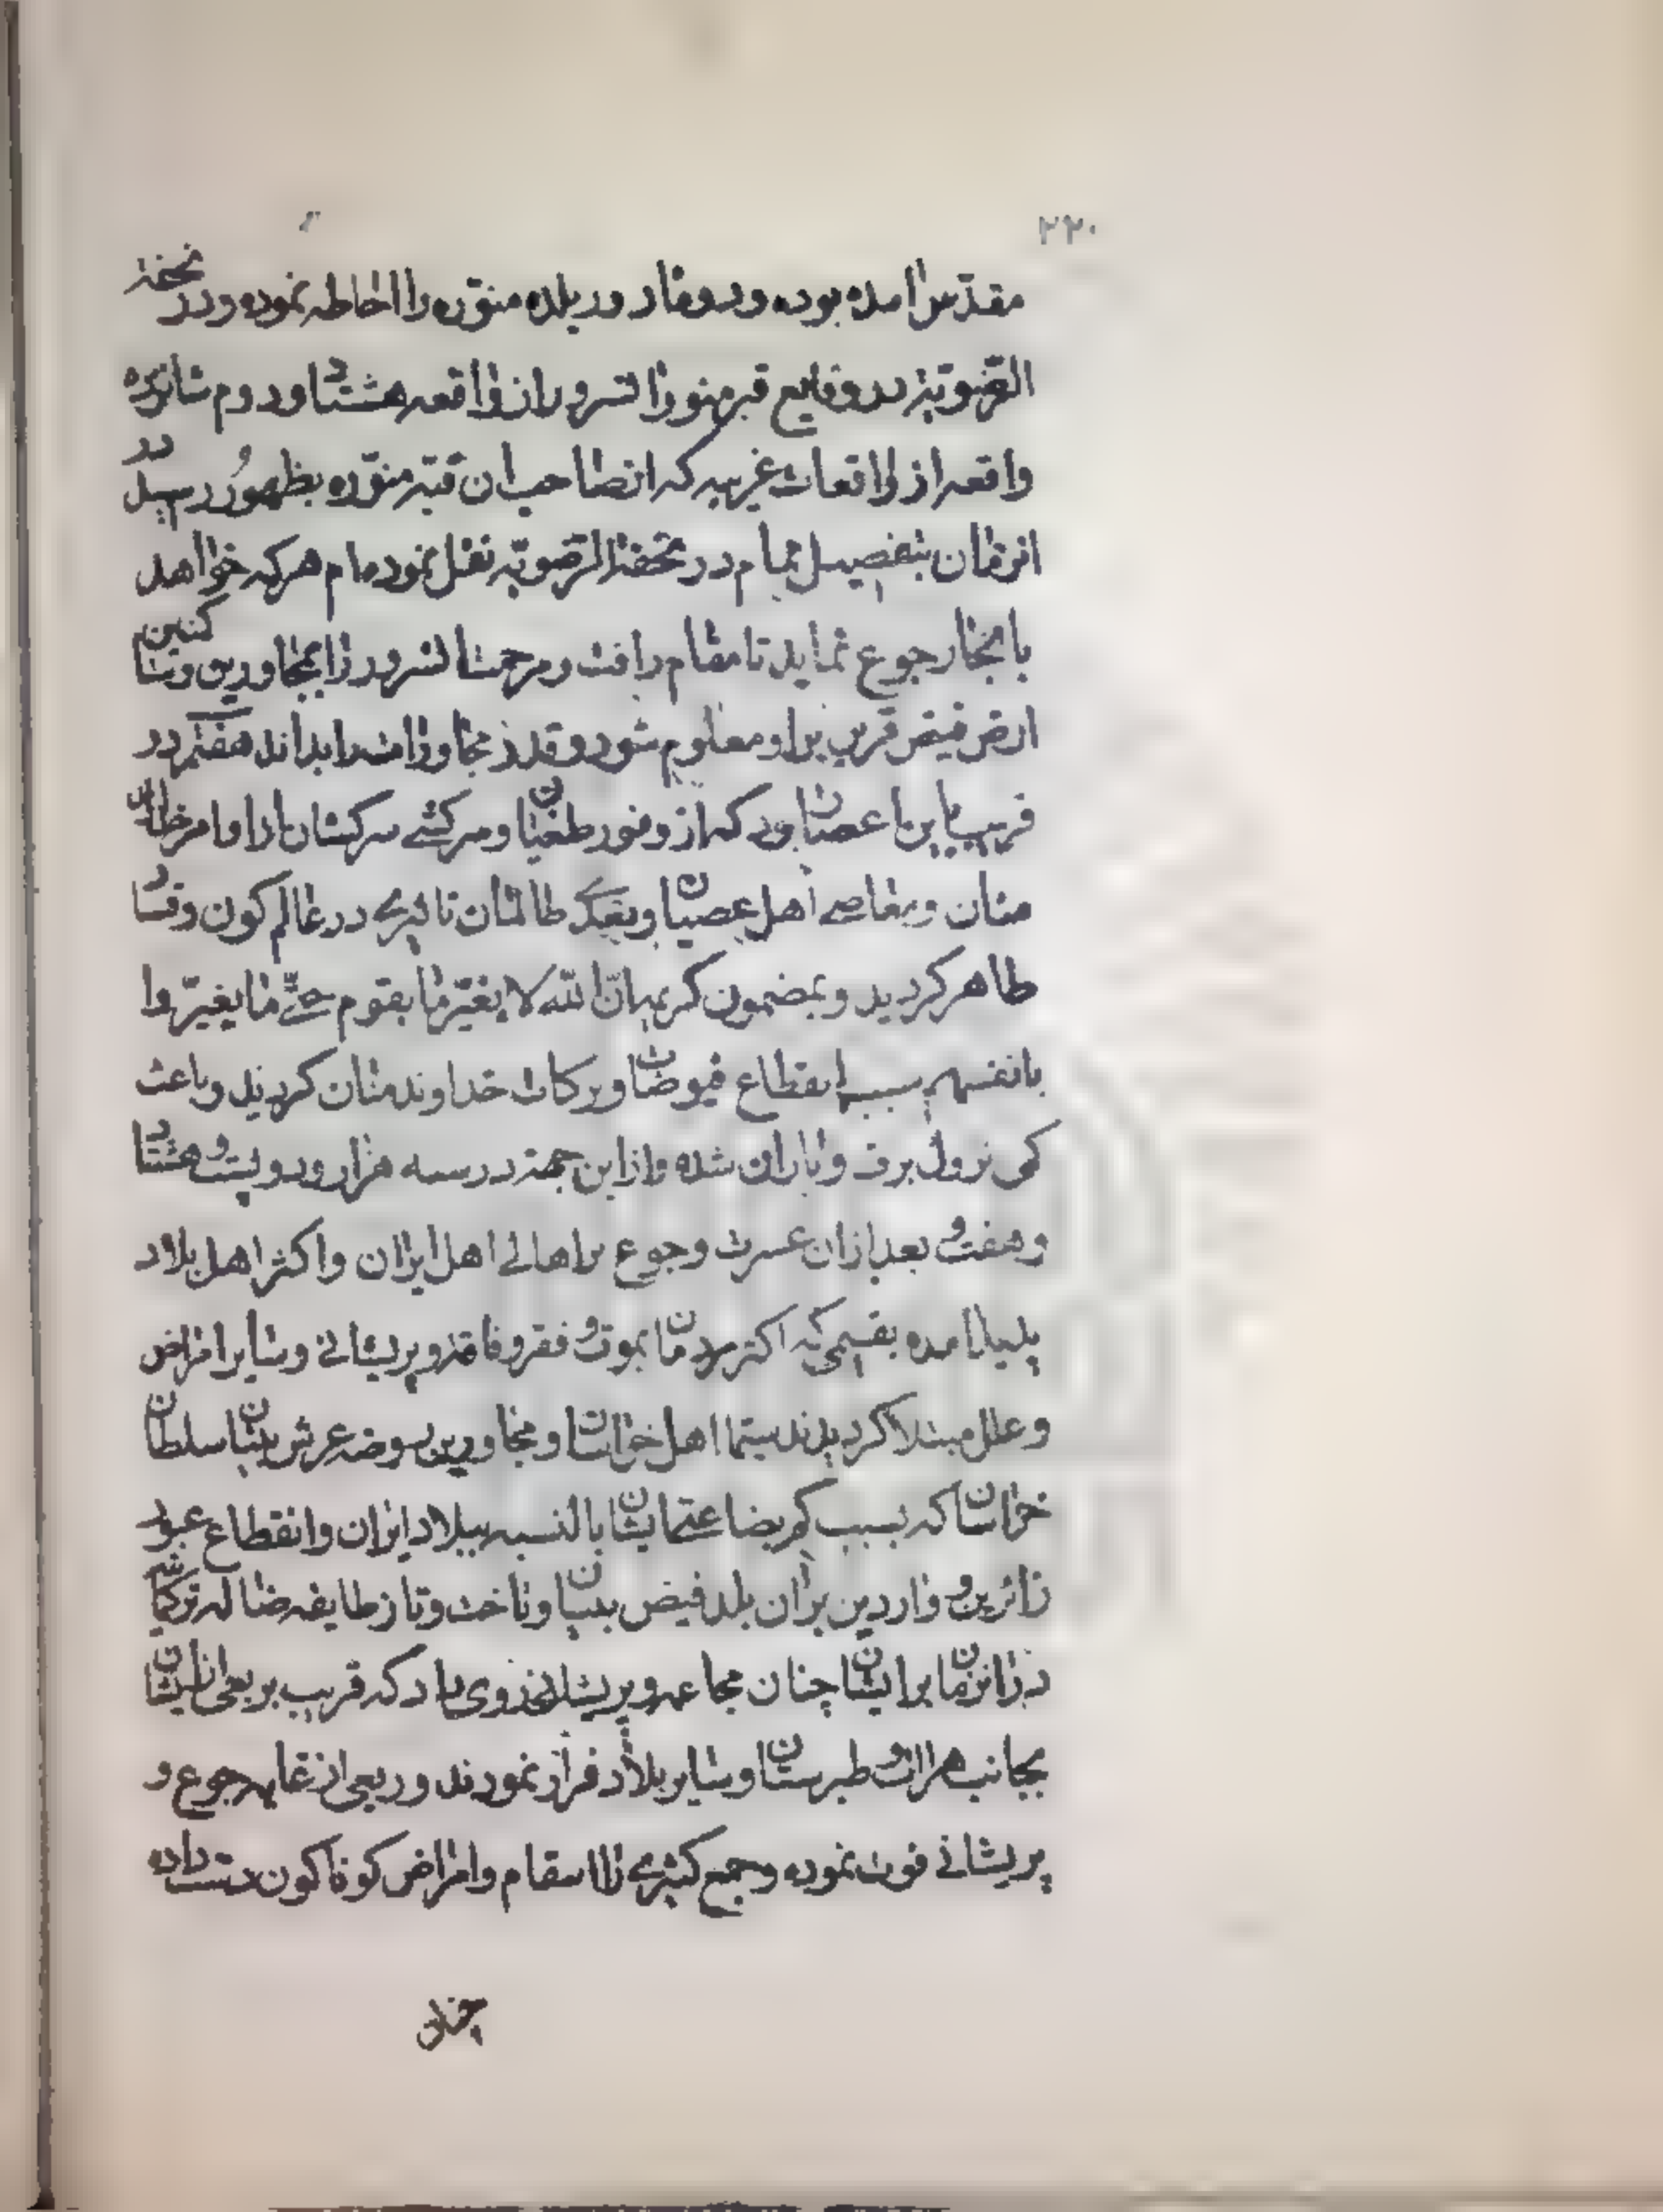 ۲۲۰
مقدس امده بوده و دو مار دور بلده منوره را احاطه نموده و در تحفة
الرضویه در وقایع قبر منور انسرور از واقعه هشتاد و دوم شانزده
واقعه از واقعات غریبه که از صاحب ان قبه منوره بظهور رسیده در
انزمان بتفصیل تمام در تحفة الرضویه نقل نموده‌ام هر که خواهد
بانجا رجوع نماید تا مقام رافت و مرحمت انسرور را بمجاورین و ساکنین
ارض فیض قرین بر او معلوم شود و قدر مجاورت را بداند هفتم در
قریب باین اعصار که از وفور طغیان و سرکشی سرکشان از اوامر خدای
منان و معاصی اهل عصیان و تعدی ظالمان تاثیری در عالم کون و فساد
ظاهر کردید و بمضمون کریمه ان الله لا یغیر ما بقوم حتی ما یغیروا
بانفسهم سبب انقطاع فیوضات و برکات خداوند منان کردید و باعث
کمی نزول برف و باران شده و از این جهة در سنه هزار و دویست و هشتاد
و هفت و بعد از ان عسرت و جوع بر اهالی اهل ایران و اکثر اهل بلاد
پدید امده بقسمی که اکثر مردمان بموت و فقر و فاقه و پریشانی و سایر امراض
و علل مبتلا کردیدند سیما اهل خراسان و مجاورین روضه عرش بنیان سلطان
خراسان که بسبب کم بضاعتی ایشان بالنسبه ببلاد ایران و انقطاع عبور
زائرین و واردین بران بلد فیض بنیان و تاخت و تاز طایفه ضاله ترکمانیه
در انزمان بر ایشان چنان مجاعه و پریشانی روی داد که قریب بربعی از ایشان
بجانب هرات و طبرستان و سایر بلاد فرار نمودند و ربعی از غایه جوع و
پریشانی فوت نموده و جمع کثیری را اسقام و امراض کوناکون دست داده
چنان